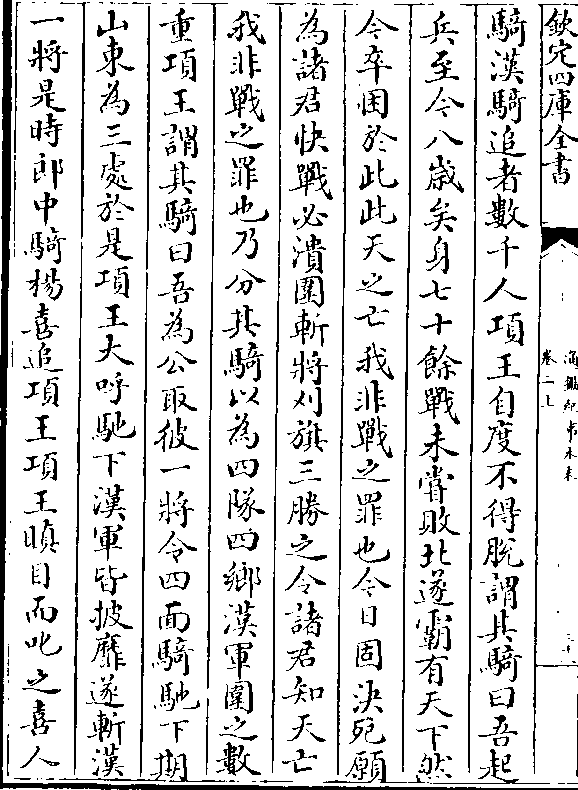 欽定四庫全書
通鑑紀事本末
卷二上
三十
騎漢騎追者數千人項王自度不得脫謂其騎曰吾起
兵至今八歲矣身七十餘戰未嘗敗北遂霸有天下然
今卒困於此此天之亡我非戰之罪也今日固決死願
為諸君快戰必潰圍斬將刈旗三勝之令諸君知天亡
我非戰之罪也乃分其騎以為四隊四鄉漢軍圍之數
重項王謂其騎曰吾為公取彼一將令四面騎馳下期
山東為三處於是項王大呼馳下漢軍皆披靡遂斬漢
一將是時郎中騎楊喜追項王項王瞋目而叱之喜人